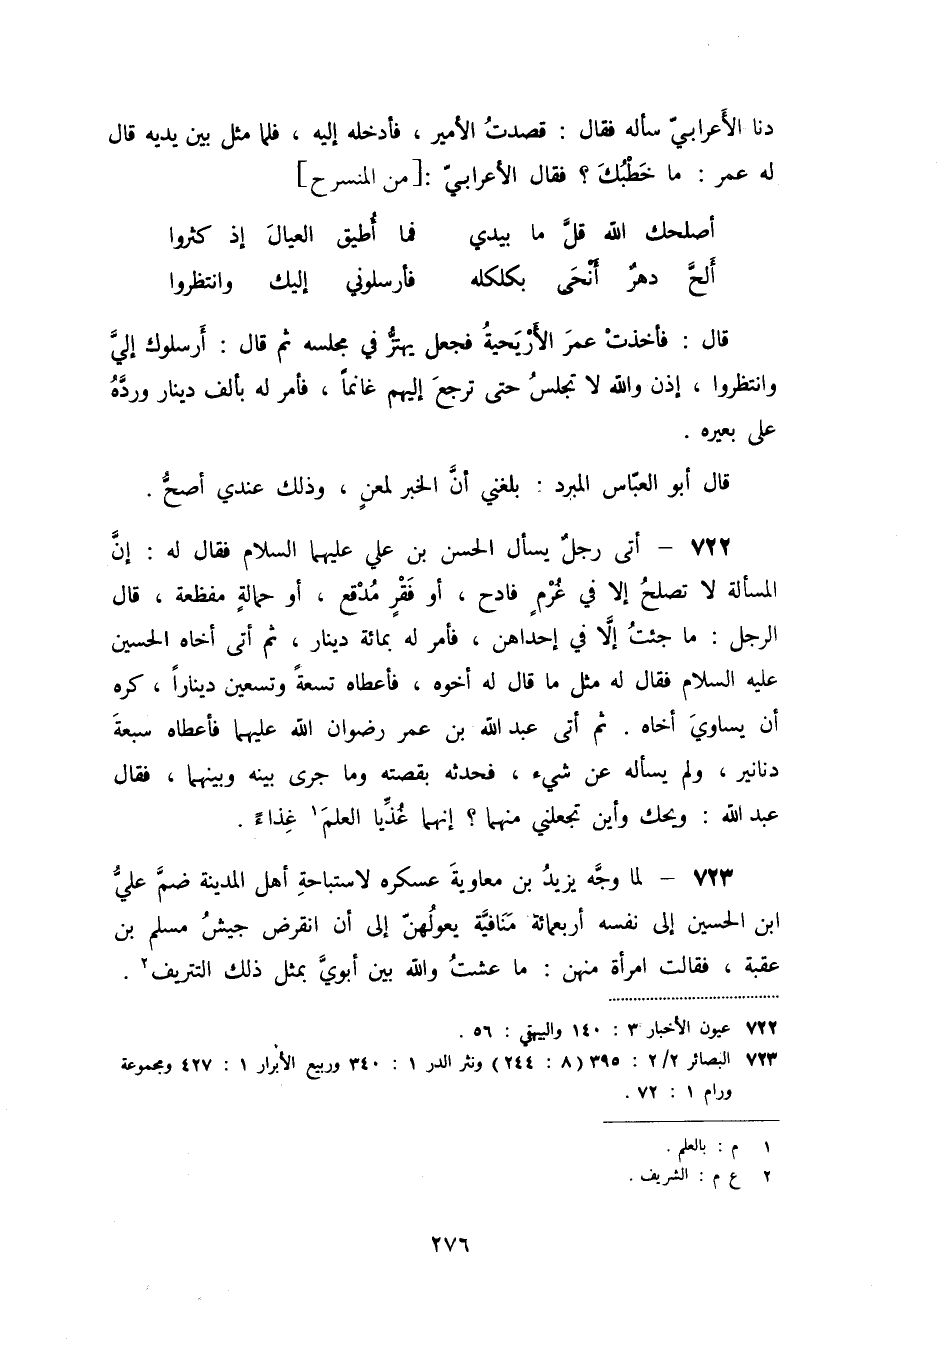 دنا الأَعرابيّ سأله فقال : قصدتُ الأمير ، فأدخله إليه ، فلما مثل بين يديه قال
له عمر : ما خَطْبُكَ ؟ فقال الأعرابيّ :[من المنسرح]
أصلحك الله قلَّ ما بيدي فما أُطيق العيالَ إذ كثروا
أَلحَّ دهرٌ أَنْحَى بكلكله فأرسلوني إليك وانتظروا
قال : فأخذتْ عمرَ الأَرْيَحيةُ فجعل يهتزُّ في مجلسه ثم قال : أَرسلوك إليَّ
وانتظروا ، إذن والله لا تجلسُ حتى ترجعَ إليهم غانماً ، فأمر له بألف دينار وردَّهُ
على بعيره .
قال أبو العبّاس المبرد : بلغني أنَّ الخبر لمعنٍ ، وذلك عندي أصحُّ .
٧٢٢ – أتى رجلٌ يسأل الحسن بن علي عليهما السلام فقال له : إنَّ
المسألة لا تصلحُ إلا في غُرْمٍ فادح ، أو فَقْرٍ مُدْقع ، أو حمالةٍ مفظعة ، قال
الرجل : ما جئتُ إلَّا في إحداهن ، فأمر له بمائة دينار ، ثم أتى أخاه الحسين
عليه السلام فقال له مثل ما قال له أخوه ، فأعطاه تسعةً وتسعين ديناراً ، كره
أن يساويَ أخاه . ثم أتى عبد الله بن عمر رضوان الله عليهما فأعطاه سبعةَ
دنانير ، ولم يسأله عن شيء ، فحدثه بقصته وما جرى بينه وبينهما ، فقال
عبد الله : ويحك وأين تجعلني منهما ؟ إنهما غُذِّيا العلمَ١ غِذاءً .
٧٢٣ – لما وجَّه يزيدُ بن معاويةَ عسكره لاستباحةِ أهل المدينة ضمَّ عليُّ
ابن الحسين إلى نفسه أربعمائة مَنَافيَّة يعولُهنّ إلى أن انقرض جيشُ مسلم بن
عقبة ، فقالت امرأة منهن : ما عشتُ والله بين أبويَّ بمثل ذلك التتريف٢ .
٧٢٢ عيون الأخبار ٣ : ١٤٠ والبيهقي : ٥٦ .
٧٢٣ البصائر ٢/٢ : ٣٩٥ (٨ : ٢٤٤) ونثر الدر ١ : ٣٤٠ وربيع الأبرار ١ : ٤٢٧ ومجموعة
ورام ١ : ٧٢ .
١ م : بالعلم .
٢ ع م : الشريف .
٢٧٦